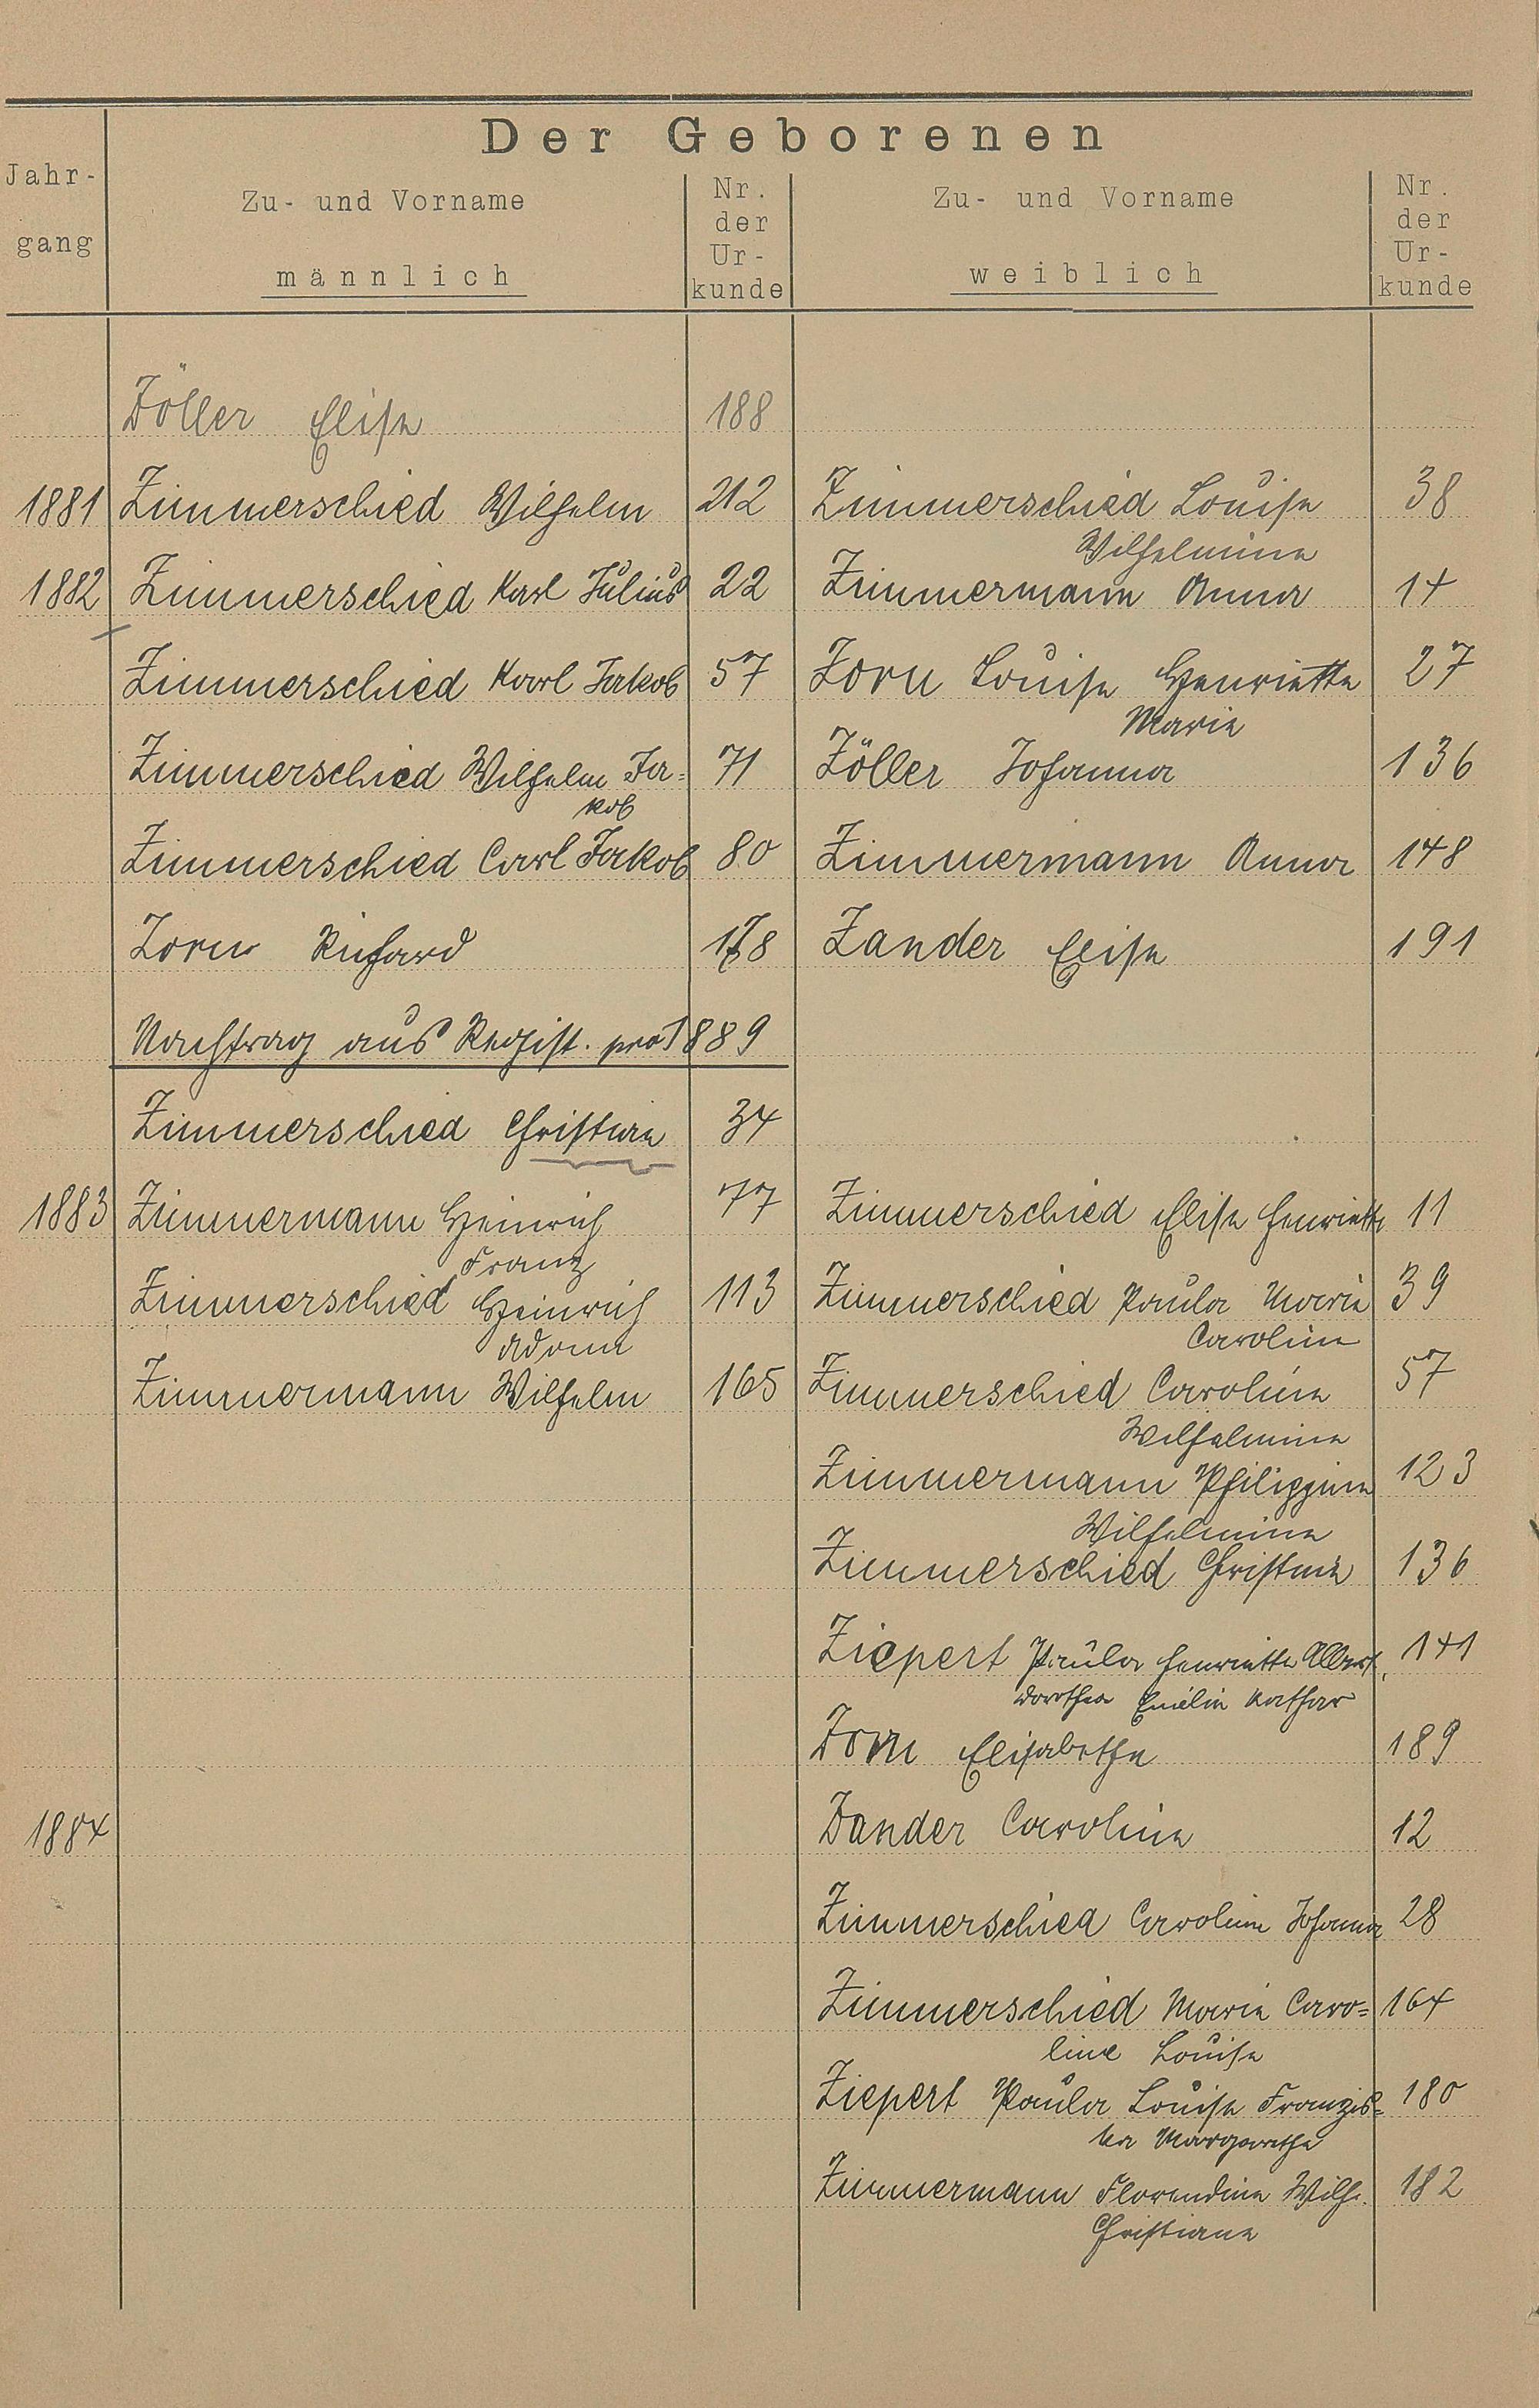 Der Geborenen
Jahr-
gang
Zu- und Vorname
männlich
Nr.
der
Ur-
kunde
Zu- und Vorname
weiblich
Nr.
der
Ur-
kunde
Zöller Elise 188
1881 Zimmerschied Wilhelm 212 Zimmerschied Louise 38
Wilhelmine
1882 Zimmerschied Karl Julius 22 Zimmermann Anna 14
Zimmerschied Karl Jakob 57 Zorn Louise Henriette 27
Marie
Zimmerschied Wilhelm Ja= 71 Zöller Johanna 136
kob
Zimmerschied Carl Jakob 80 Zimmermann Anna 148
Zorn Richard 178 Zander Elise 191
Nachtrag aus Regist. pro 1889
Zimmerschied Christian 34
1883 Zimmermann Heinrich 77 Zimmerschied Elise Henriette 11
Franz
Zimmerschied Heinrich 113 Zimmerschied Paula Marie 39
Adam Caroline
Zimmermann Wilhelm 165 Zimmerschied Caroline 57
Wilhelmine
Zimmermann Philippine 123
Wilhelmine
Zimmerschied Christine 136
Ziepert Paula Henriette Albert. 141
Dorothea Emilie Kathar
Zorn Elisabethe 189
1884 Zander Caroline 12
Zimmerschied Caroline Johanna 28
Zimmerschied Marie Caro= 164
line Louise
Ziepert Paula Louise Franzis= 180
ka Margarethe
Zimmermann Florendine Wilh. 182
Christiane